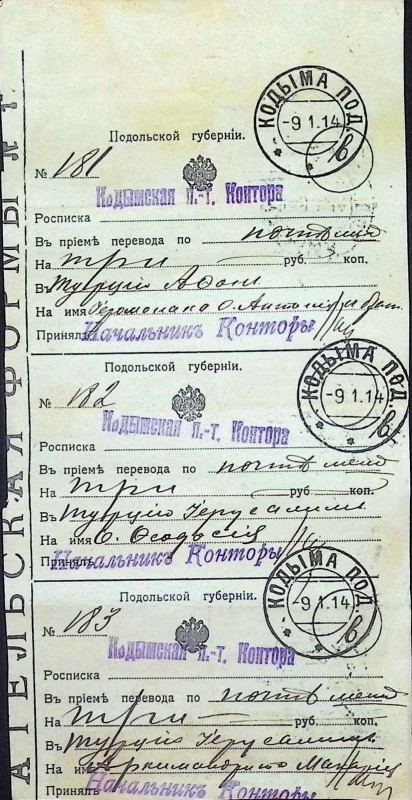 КОДЫМА ПОД.
-9 1.14
Подольской губерніи.
№ 181
Кодымская п.-т. Контора
Росписка
Въ пріемѣ перевода по почтѣ
На три руб. коп.
Въ Турцію Афонъ
На имя Іеромонаха О. Антонія
Принялъ Начальникъ Конторы
КОДЫМА ПОД.
-9 1.14
в
Подольской губерніи.
№ 182
Кодымская п.-т. Контора
Росписка
Въ пріемѣ перевода по почтѣ
На три руб. коп.
Въ Турцію Іерусалимъ
На имя О.
Принялъ Начальникъ Конторы
КОДЫМА ПОД.
-9 1.14
в
Подольской губерніи.
№ 183
Кодымская п.-т. Контора
Росписка
Въ пріемѣ перевода по почтѣ
На три руб. коп.
Въ Турцію Іерусалимъ
На имя Архимандрита
Принялъ Начальникъ Конторы
АТЕЛЬСКАЯ ФОРМЫ